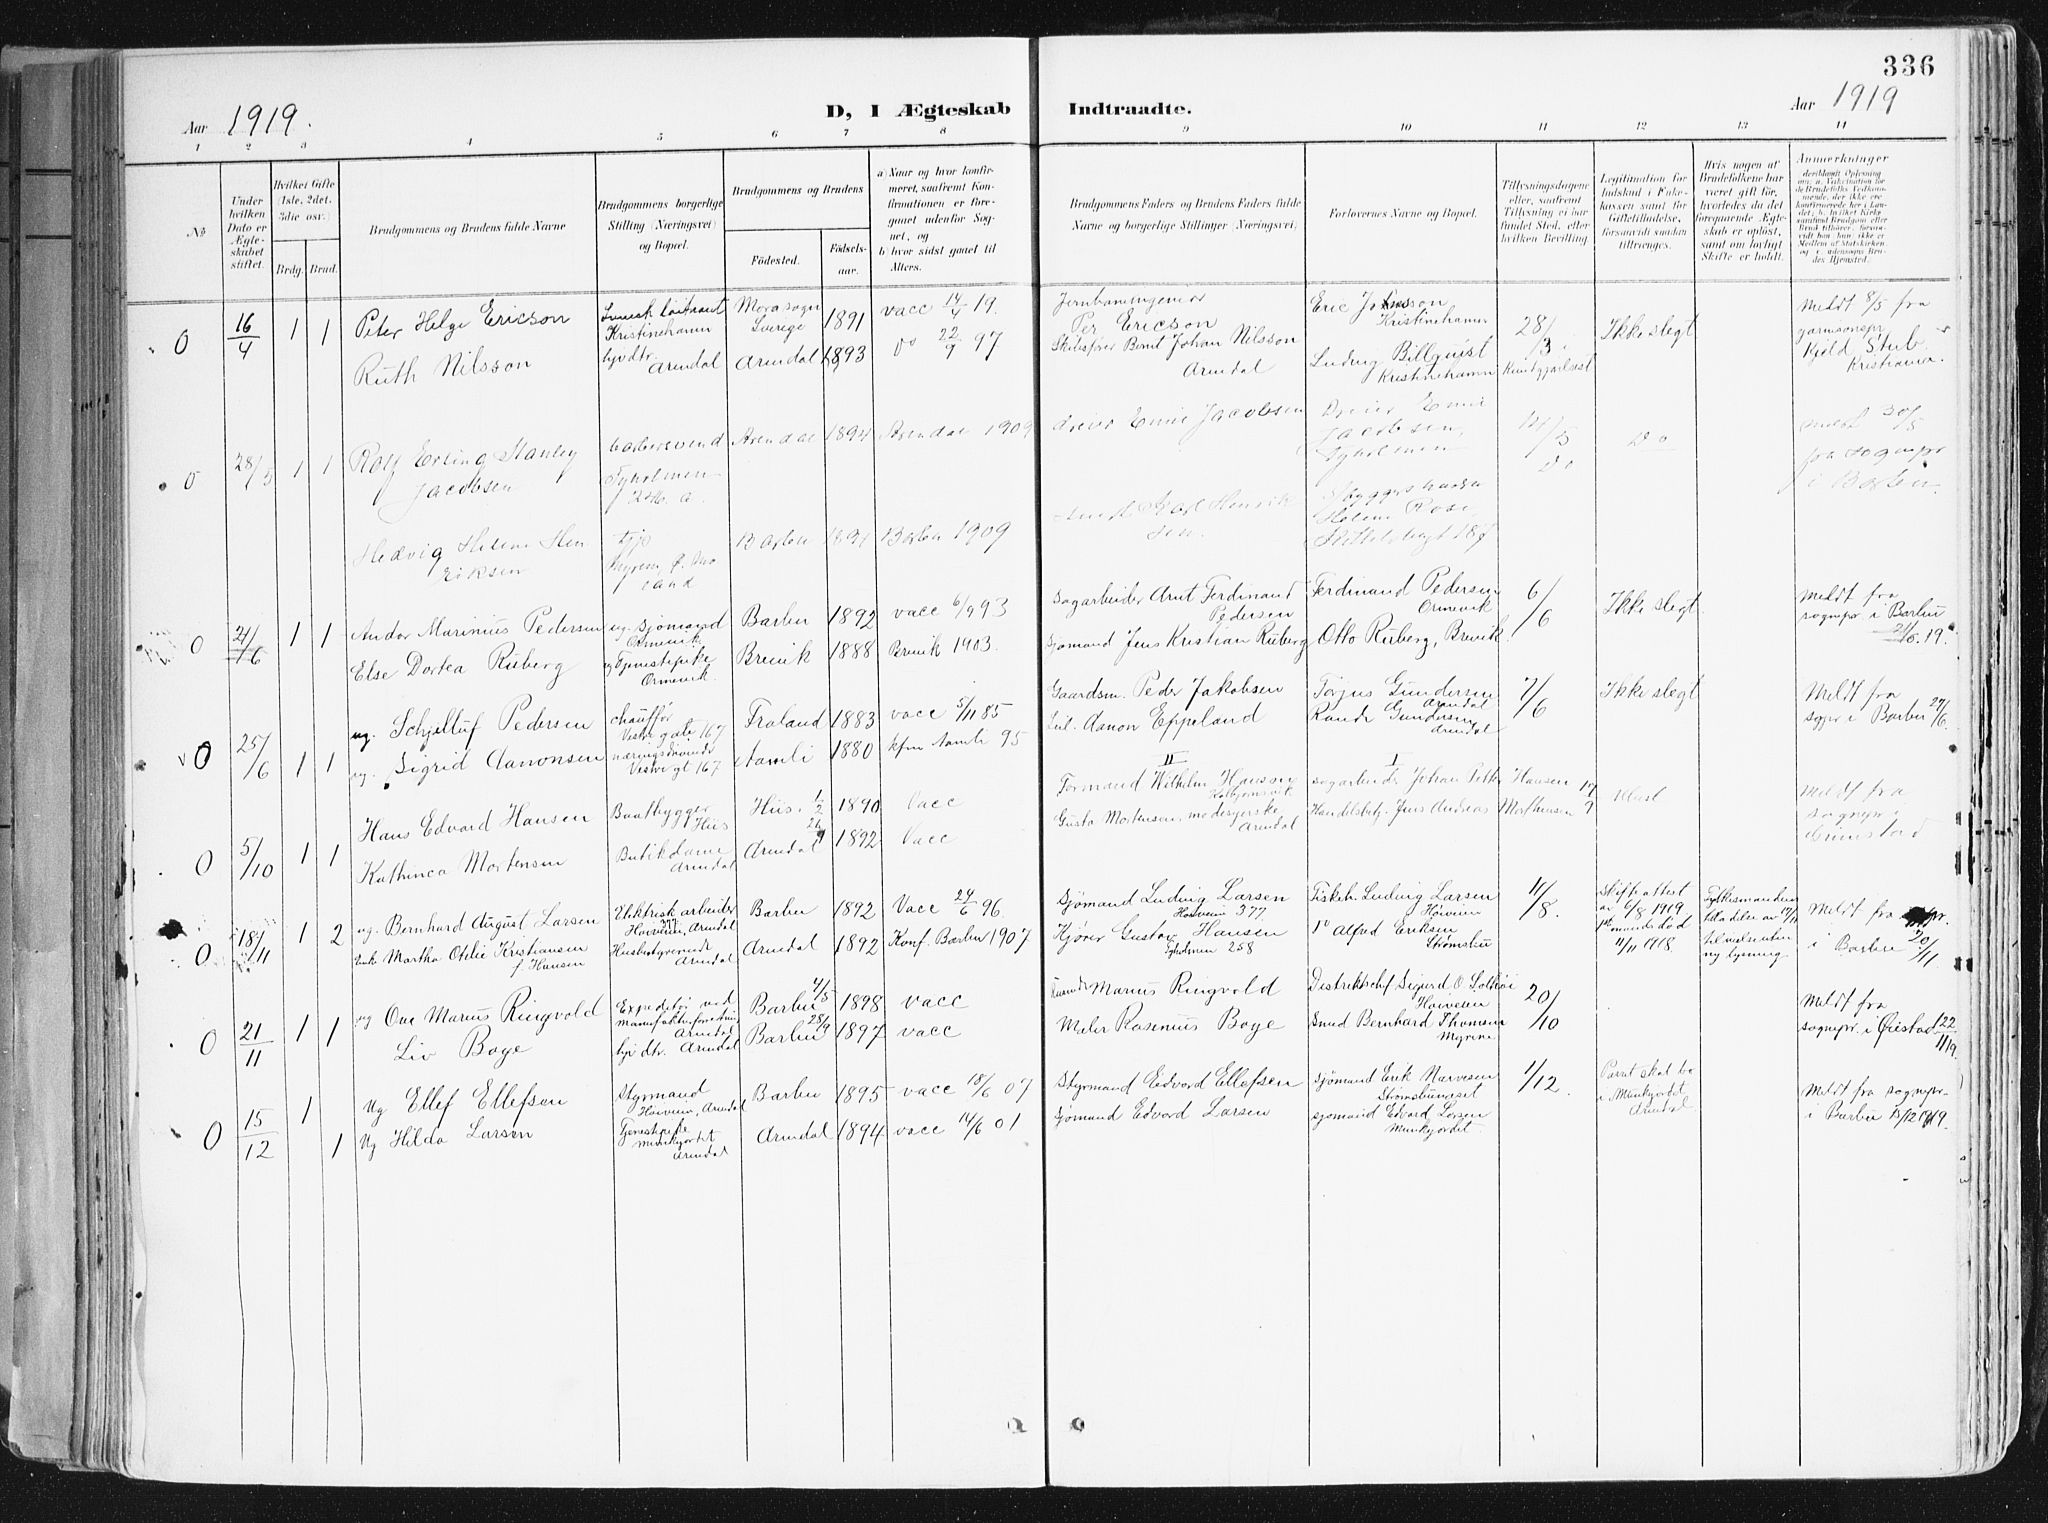 336
Aar 1919.
D, I Ægteskab Indtraadte.
Aar 1919
1 2 3 4 5 6 7 8 9 10 11 12 13 14
No
Under hvilken Dato er Ægteskabet stiftet.
Hvilket Gifte (1ste, 2det, 3die osv.)
Brdg. Brud.
Brudgommens og Brudens fulde Navne
Brudgommens borgerlige Stilling (Næringsvei) og Bopæl.
Brudgommens og Brudens
Fødested. Fødselsaar.
a) Naar og hvor konfirmeret, saafremt Konfirmationen er foregaaet udenfor Sognet, og
b) hvor sidst gaaet til Alters.
Brudgommens Faders og Brudens Faders fulde Navne og borgerlige Stillinger (Næringsvei)
Forlovernes Navne og Bopæl.
Tillysningsdagene eller, saafremt Tillysning ei har fundet Sted, efter hvilken Bevilling.
Legitimation for Indskud i Enkekassen samt for Giftetilladelse, forsaavidt saadan tiltrænges.
Hvis nogen af Brudefolkene har været gift før, hvorledes da det foregaaende Ægteskab er opløst, samt om lovligt Skifte er holdt.
Anmerkninger
0 16/4 1 1 Peter Helge Ericson
Kristinehamn Mora sogn Sverige 1891 vacc 14/4 19.
Jernbaneingeniør Per Ericson
Kristinehamn
28/3. Kundgjørelsest
Ikke slegt
Meldt 8/5 fra garnisonspr Kjeld Stub Kristiania.
Ruth Nilsson
hjv. dtr. Arendal Arendal 1893 do 22/9 97
Skibsfører Bernt Johan Nilsson Arendal
Ludvig Billquist Kristinehamn
0 28/5 1 1 Rolf Erling Stanley Jacobsen
barbersvend Tyholmen Arendal 1894 Arendal 1909
Dreier Emil Jacobsen
Dreier Emil Jacobsen, Tyholmen
Do
Do
Meldt 30/5 fra sognepr i Barbu.
Hedvig Helene Henriksen
Barbu Barbu 1909
Karl Henriksen
0 21/6 1 1 Andor Marinius Pedersen
ug. sjømand Ormevik Barbu 1892 vacc 6/9 93
Sagarbeider Arnt Ferdinand Pedersen
Ferdinand Pedersen Ormevik
6/6
Ikke slegt
Meldt fra sognepr i Barbu 21/6. 19.
Else Dortea Riiberg
ug tjenestepike Ormevik. Brevik 1888 Brevik 1903.
Sjømand Jens Kristian Riiberg
Otto Riiberg, Brevik.
0 25/6 1 1 ug. Schjeltuf Pedersen
chauffør Vestre gate 167 Froland 1883 vacc 5/11 85
Gaardsm. Peder Jakobsen
Torjus Gundersen Arendal
7/6
Ikke slegt
Meldt fra sogpr i Barbu 27/6.
ug. Sigrid Aanonsen
næringsdrivende Vestre gt 167 Aamli 1880 kfm Aamli 95
Aanon Eppeland
Gundersen Arendal
0 5/10 1 1 Hans Edvard Hansen
Baatbygger Hiis Hiis. 1/2 1890 Vacc
II
Formand Wilhelm Hansen
I
sagarbeider Johan Petter Hansen
17/9
Meldt fra sognepr i Grimstad
Kathinca Mortensen
Butikdame Arendal Arendal 1892 Vacc
Gusta Mortensen, modesyerske Arendal
Handelsbetj. Jens Andreas Morthensen
0 18/11 1 2 ug. Bernhard August Larsen
Elektrisk arbeider 377 Høiveien, Arendal Barbu 1892 Vacc 24/6 96
Sjømand Ludvig Larsen Høiveien 377
Fiskeh. Ludvig Larsen Høiveien
11/8.
Skifteattest av 6/8 1919 1st mands død 11/11 1918.
Meldt fra i Barbu 20/11.
Enk Martha Otilie Kristiansen f. Hansen
Husbestyrerinde Arendal Arendal 1892 Konf. Barbu 1907
Kjører Gustav Hansen Tyholmen 258
Alfred Eriksen Strømsbu
0 21/11 1 1 ug Ove Marius Ringvold
Expeditør ved manufakturforretning Arendal Barbu 4/5 1898 vacc
Marius Ringvold
Distriktschef Sigurd O Høiveien
20/10
Meldt fra sognepr. i Øiestad 22/11 19.
Liv Boye
hjv dtr. Arendal Barbu 28/9 1897 vacc
Maler Rasmus Boye
Smed Bernhard Thomsen Myrene
0 15/12 1 1 Ug Ellef Ellefsen
Styrmand Høiveien, Arendal Barbu 1895 vacc 18/6 07
Styrmand Edvord Ellefsen
Sjømand Erik Narvesen Strømsbuneset
1/12.
Paret skal bo i Munkejordet Arendal
Meldt fra sognepr. i Barbu 15/12 1919.
Ug Hilda Larsen
Tjenestepike Munkjordet Arendal Arendal 1894 vacc 14/6 01
Sjømand Edvord Larsen
sjømand Edvard Larsen Munkjordet.